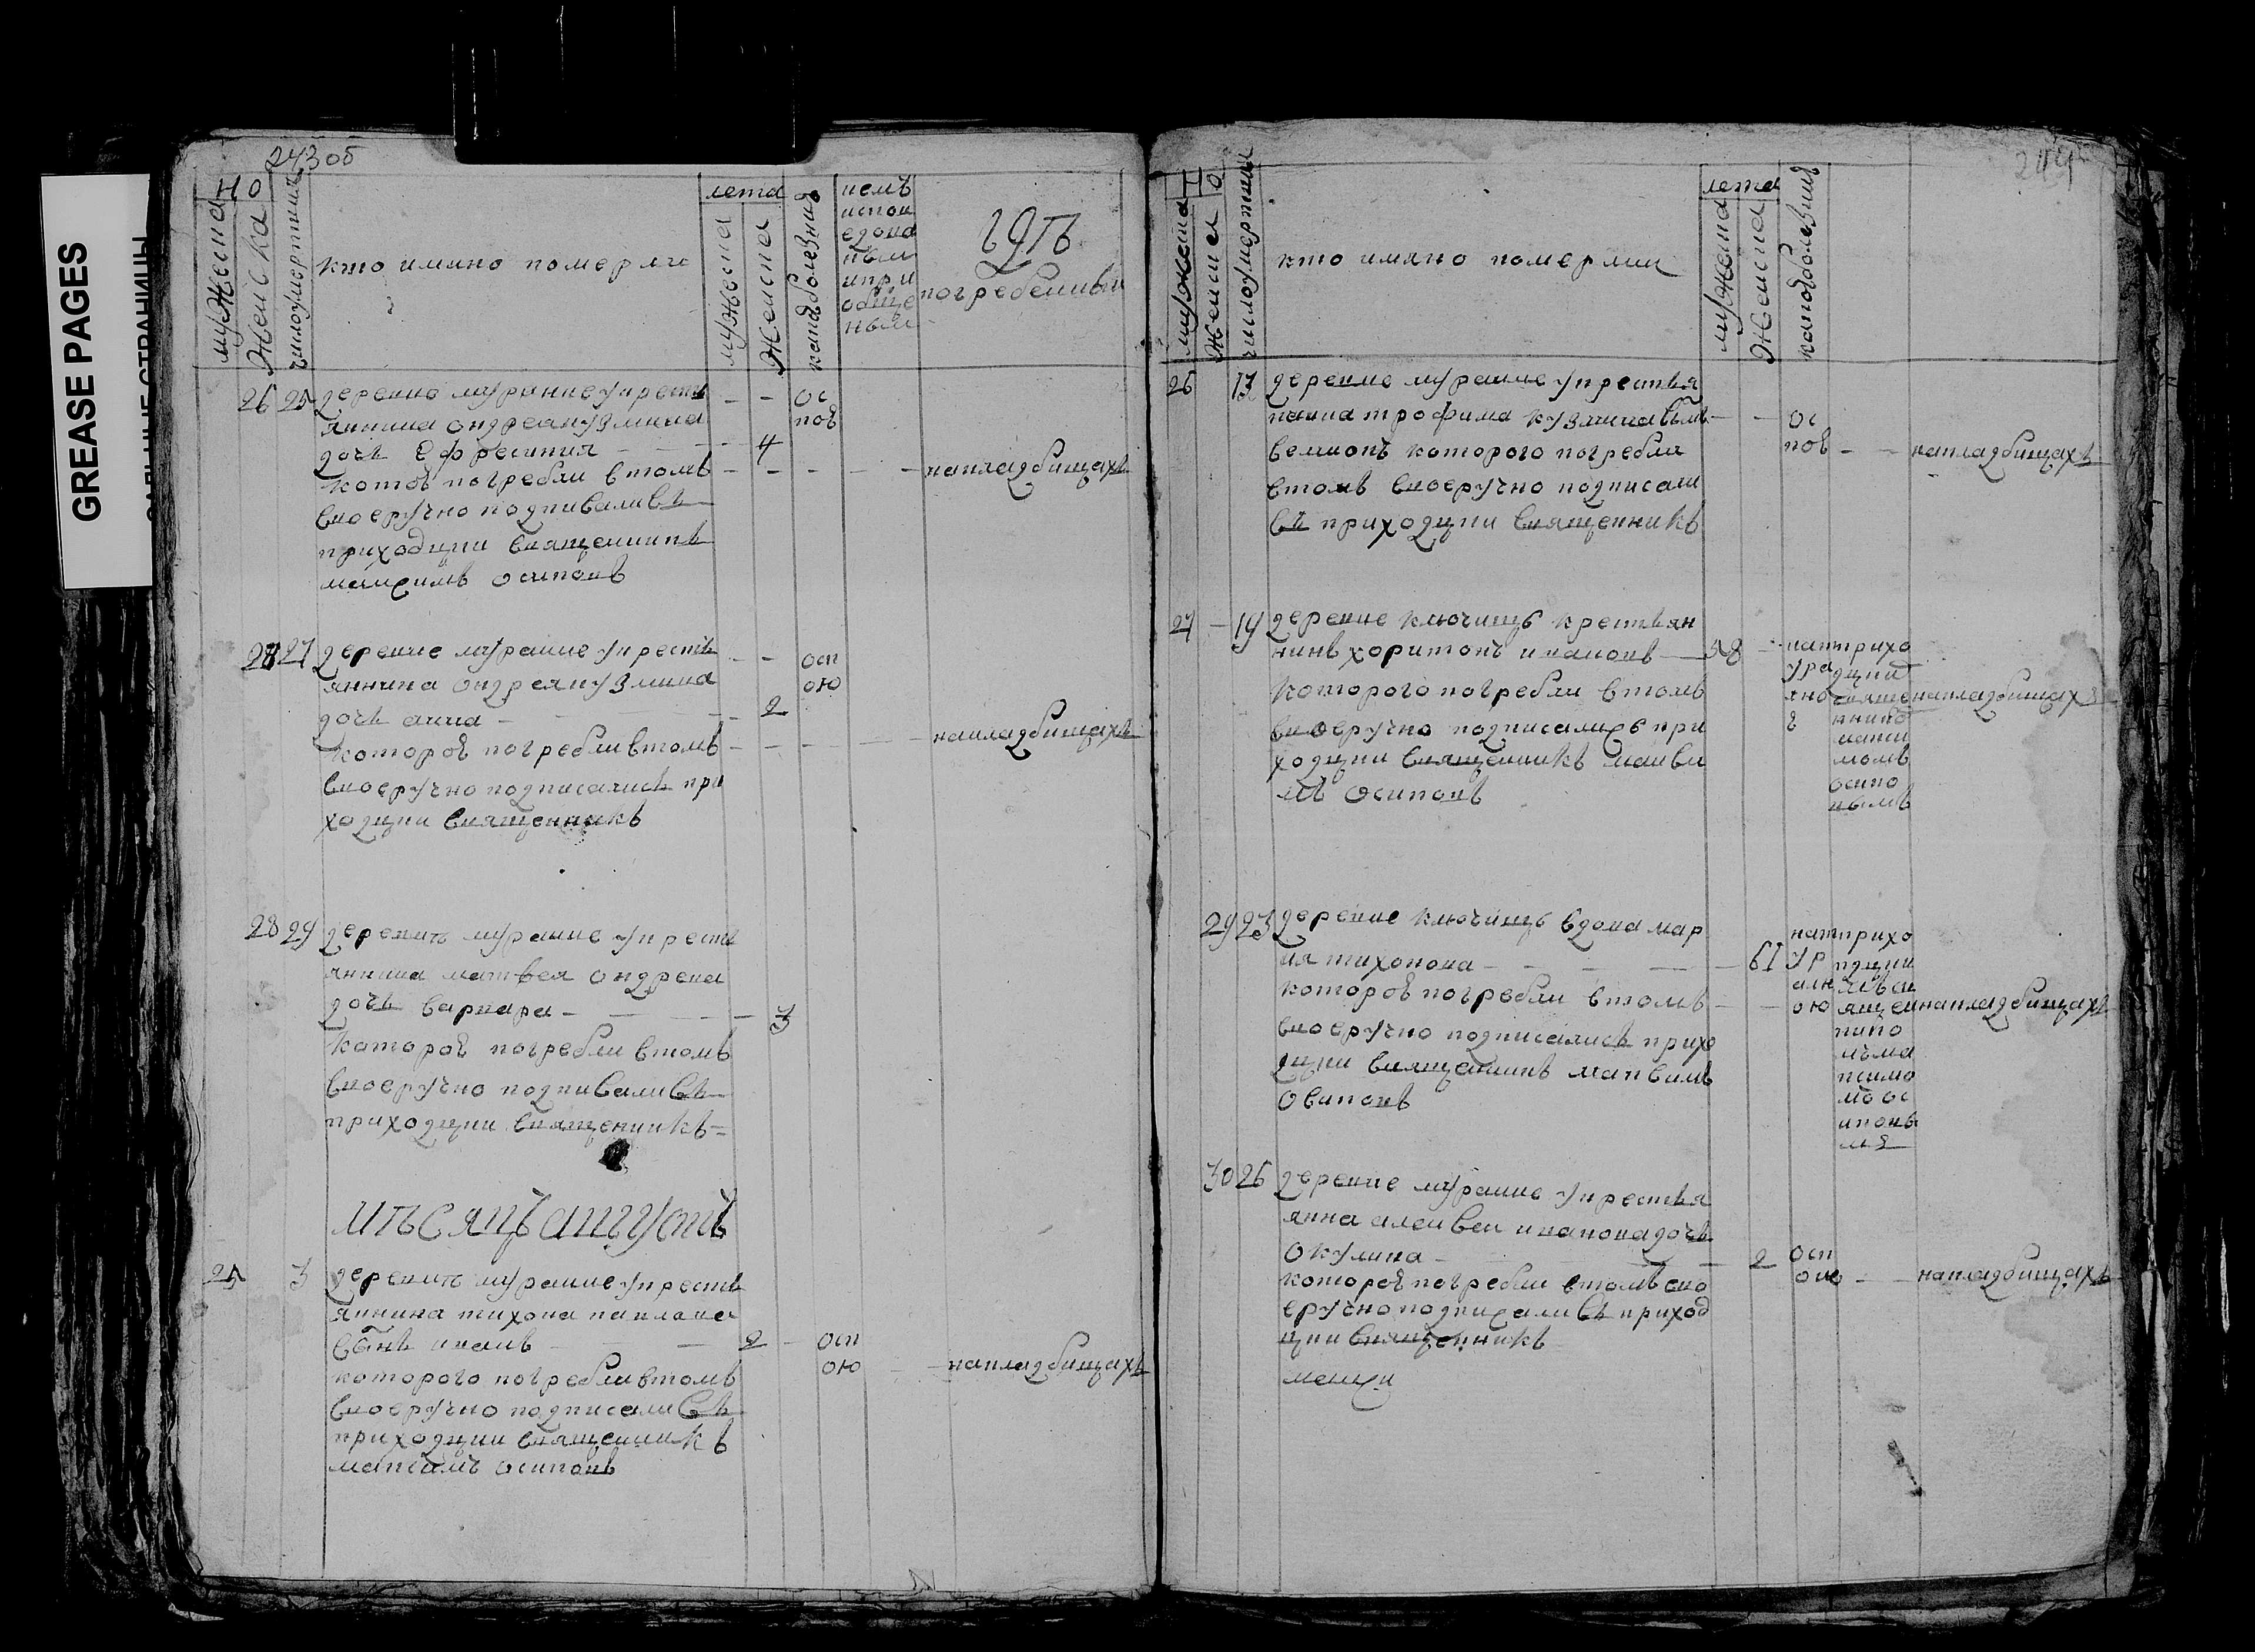 GREASE PAGES
243 об
но
мужеска
женска
число умертвия
кто имяно померли
лета
мужеска
женска
какою болезнию
кемъ
испов
едова
ныи
и при
обще
ныи
гдѣ
погребенныи
26 25 деревне муравие у кресть
яннина ондрея кузмина
дочь Ефресиния 4
оспою
которою погребли в томъ
своеручно подписались
приходцки священникъ
максимъ осиповъ
на кладбищахъ
27 деревне муравие у кресть
яннина ондрея кузмина
дочь анна 2
осп
ою
которою погребли в томъ
своеручно подписались при
ходцки священникъ
на кладбищахъ
28 29 деревнѣ муравие у кресть
яннина матвея ондреева
дочь варвара 3
которою погребли в томъ
своеручно подписались
приходцки священникъ
мѣсяцъ августъ
25 3 деревнѣ муравие у кресть
яннина тихона павлова
сынъ иванъ 2
осп
ою
которого погребли в томъ
своеручно подписались
приходцки священникъ
максимъ осиповъ
на кладбищахъ
244
но
мужеска
женска
число умертвия
кто имяно померли
лета
мужеска
женска
какою болезния
26 деревне муравие у крестья
нина трофима кузмина сынъ
которого погребли
в томъ своеручно подписали
сь приходцки священникъ
ос
пою
на кладбищахъ
27 19 деревне ключищь крестьян
нинъ харитонъ ивановъ 58
которого погребли в томъ
своеручно подписались при
ходцки священникъ макси
мъ осиповъ
нат
ура
лно
ю
прихо
дцкимъ
свяще
нником
макси
момъ
осипо
вымъ
на кладбищахъ
29 23 деревне ключищь вдова мар
ия тихонова 61
которою погребли в томъ
своеручно подписались прихо
дцки священникъ максимъ
осиповъ
нат
ур
алн
ою
прихо
дцки
мъ св
ящен
нико
мъ ма
ксимо
мъ ос
иповы
мъ
на кладбищахъ
30 26 деревне муравие у крестья
янина алексея иванова дочь
окулина 2
осп
ою
которою погребли в томъ сво
еручно подписались приход
цки священникъ
макси
на кладбищахъ